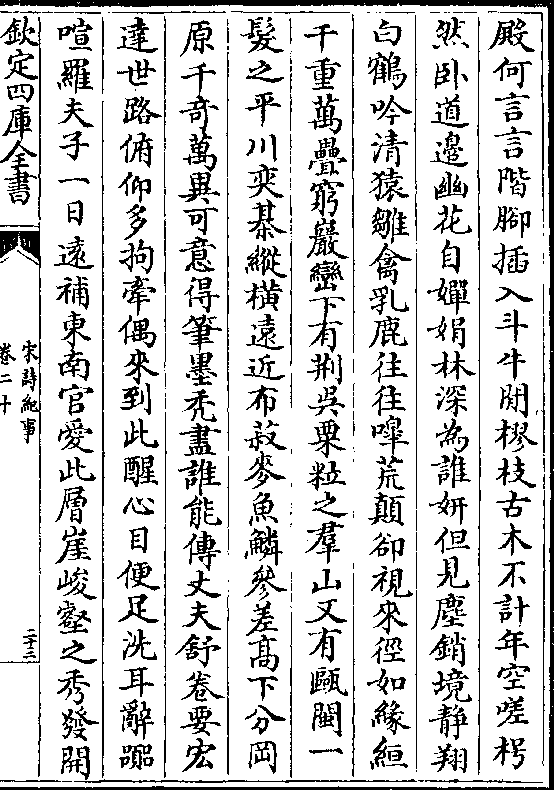 殿何言言階腳插入斗牛閒樛枝古木不計年空嗟枵
然卧道邊幽花自嬋娟林深為誰妍但見塵銷境静翔
白鶴吟清猿雛禽乳鹿往往嘷荒顛卻視來徑如緣絙
千重萬疊窮巖巒下有荆吳粟粒之羣山又有甌閩一
髮之平川奕棊縱橫遠近布菽麥魚鱗參差髙下分岡
原千奇萬異可意得筆墨秃盡誰能傳丈夫舒卷要宏
達世路俯仰多拘牽偶來到此醒心目便足洗耳辭囂
喧羅夫子一日遠補東南官愛此層崖峻壑之秀發開
欽定四庫全書
宋詩紀事
卷二十
二十三